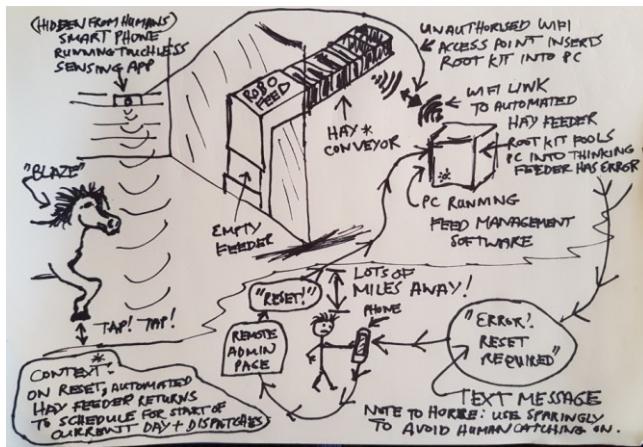 (HIDDEN FROM HUMANS)
SMART PHONE
RUNNING TOUCHLESS
SENSING APP
ROBO
FEED
UNAUTHORISED WIFI
ACCESS POINT INSERTS
ROOT KIT INTO PC
WIFI LINK
TO AUTOMATED
HAY FEEDER
ROOT KIT FOOLS
PC INTO THINKING
FEEDER HAS ERROR
HAY *
CONVEYOR
"BLAZE"
EMPTY
FEEDER
PC RUNNING
FEED MANAGEMENT
SOFTWARE
TAP! TAP!
"RESET!"
LOTS OF
MILES AWAY!
PHONE
REMOTE
ADMIN
PAGE
"ERROR!
RESET
REQUIRED"
TEXT MESSAGE
NOTE TO HORSE: USE SPARINGLY
TO AVOID HUMAN CATCHING ON.
*
CONTEXT:
ON RESET, AUTOMATED
HAY FEEDER RETURNS
TO SCHEDULE FOR START OF
CURRENT DAY + DISPATCHES